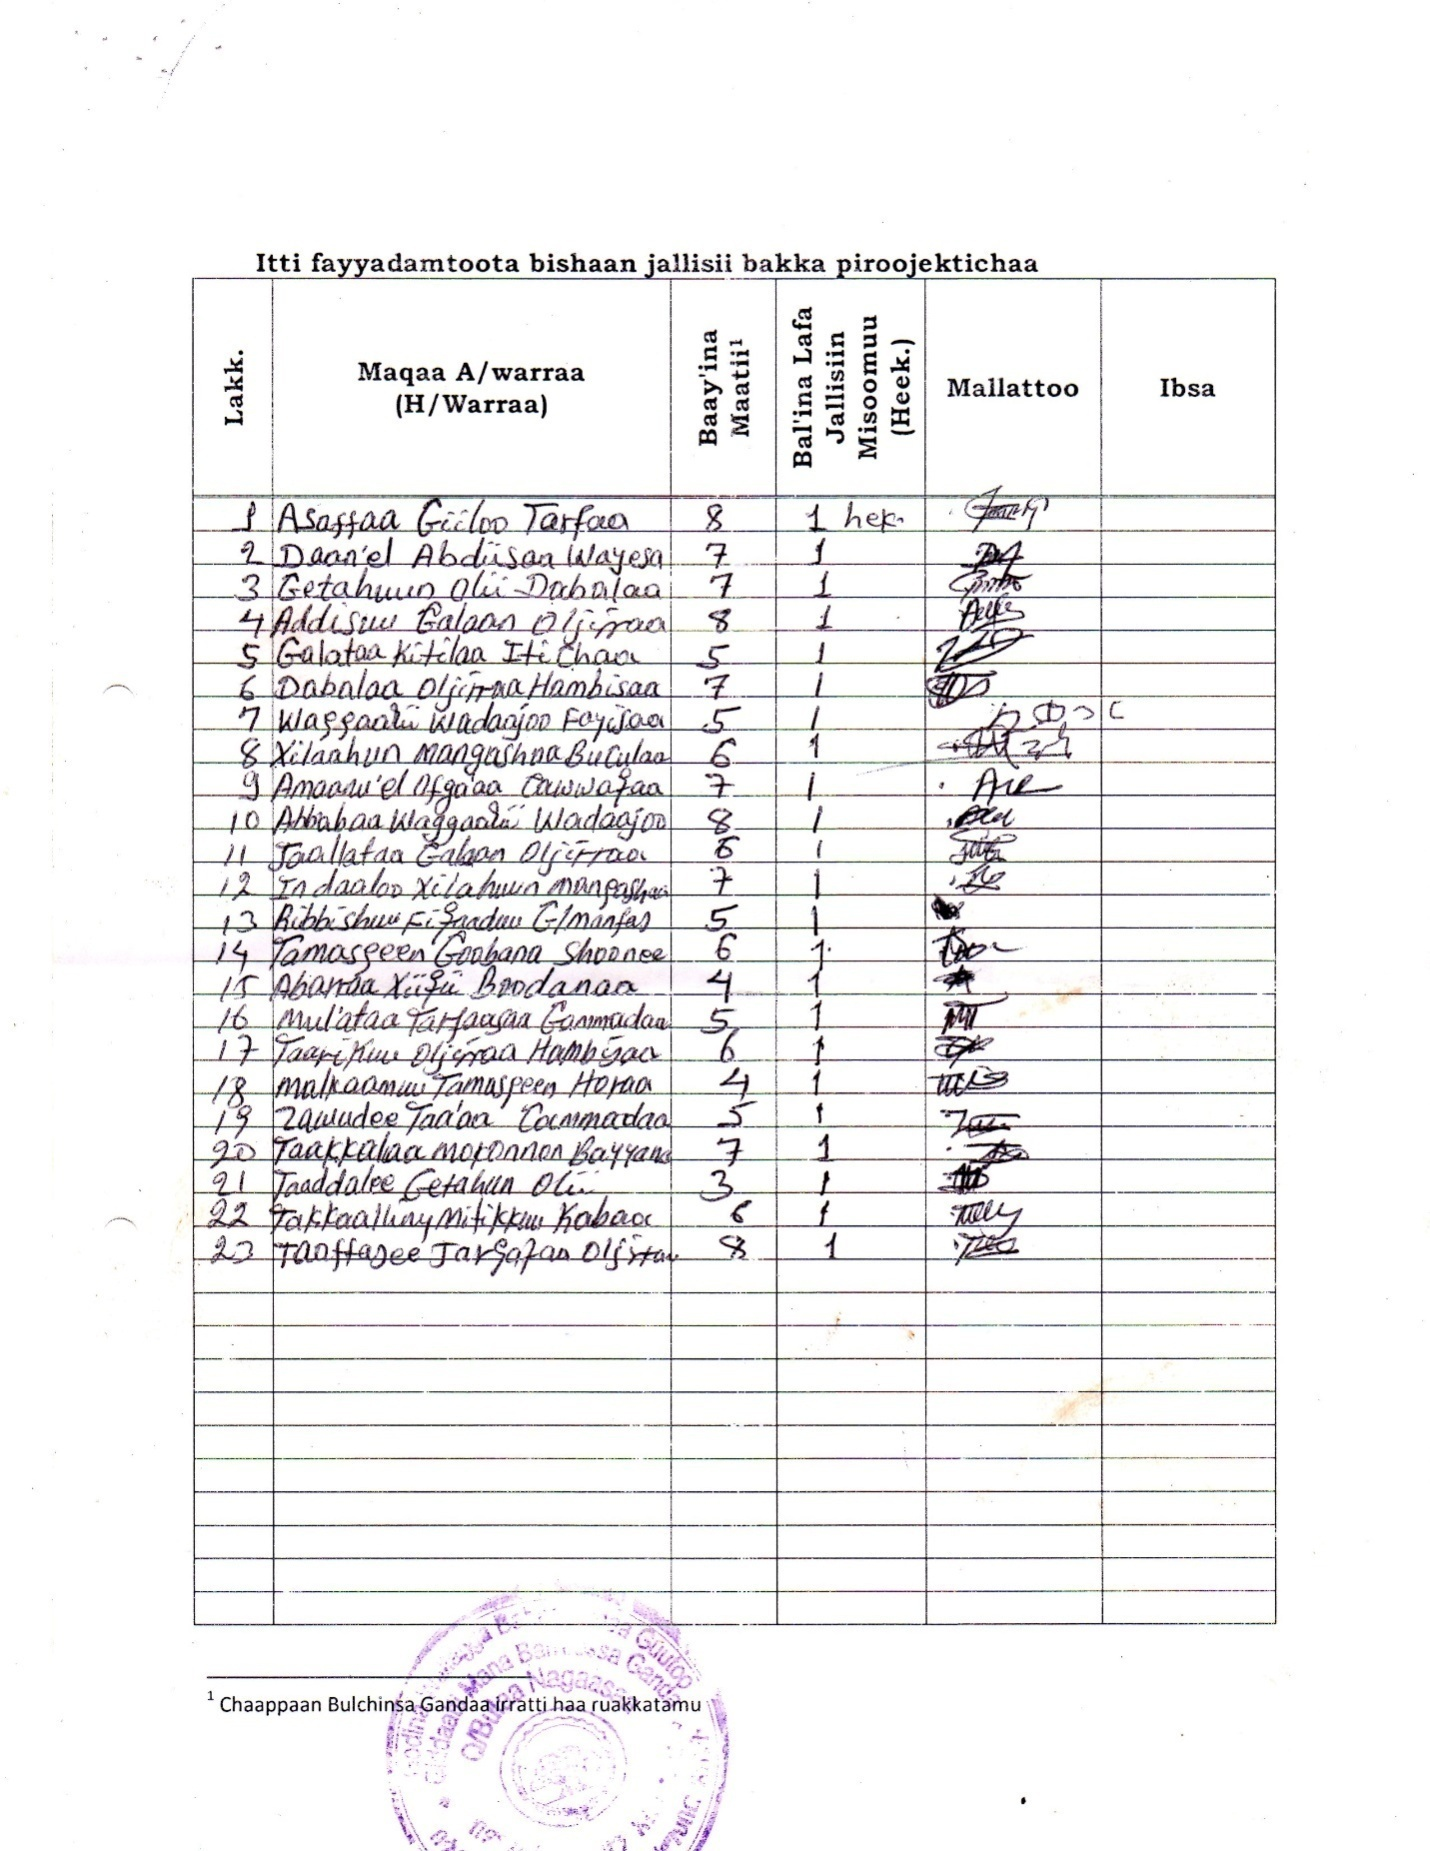 Itti fayyadamtoota bishaan jallisii bakka piroojektichaa
Lakk. Maqaa A/warraa (H/Warraa) Baay'ina Maatii¹ Bal'ina Lafa Jallisiin Misoomuu (Heek.) Mallattoo Ibsa
1 Asaffaa Giiloo Tarfaa 8 1 hek.
2 Daan'el Abdiisaa Wayesa 7 1
3 Getahuun Olii Dabalaa 7 1
4 Addisuu Galaan Oljirraa 8 1
5 Galataa Kitilaa Itichaa 5 1
6 Dabalaa Oljirraa Hambisaa 7 1
7 Waggaarii Wadaajoo Fayisaa 5 1
8 Xilaahun Mangashaa Buculaa 6 1
9 Amaanu'el Ofga'aa 7 1
10 Abbabaa Waggaarii Wadaajoo 8 1
11 Taallataa Galaan Oljirraa 8 1
12 Indaaloo Xilahuun Mangashaa 7 1
13 Ribbishuu Fiqaaduu G/manfas 5 1
14 Tamasgeen Goobana Shoonee 6 1
15 Abarraa Xiiqii Boodanaa 4 1
16 Mul'ataa Tarfaasaa Gammadaa 5 1
17 Taarikuu Oljirraa Hambisaa 6 1
18 Malkaamuu Tamasgeen Horaa 4 1
19 Zawudee Taa'aa Gammadaa 5 1
20 Taakkalaa Mokonnon Bayyana 7 1
21 Taaddalee Getahun Olii 3 1
22 Takkaalliny Mitikkuu Kabaa 6 1
23 Taaffasee 8 1
¹ Chaappaan Bulchinsa Gandaa irratti haa ruakkatamu
Mana
Q/Bulsa Nagaasa